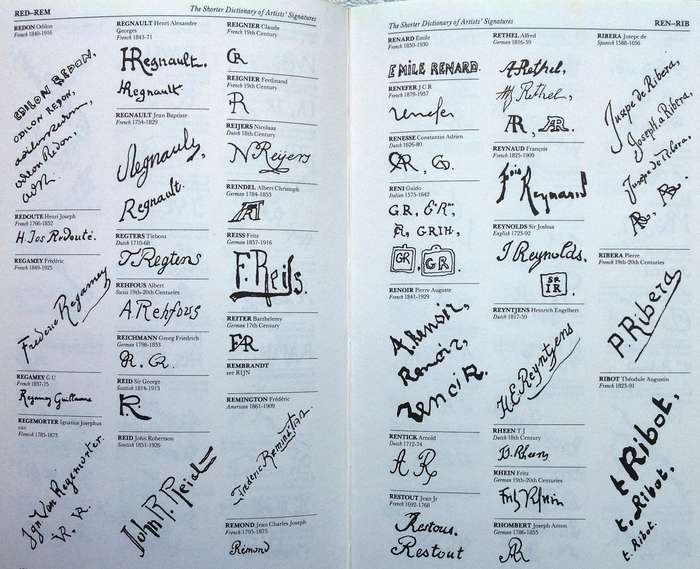 RED–REM
The Shorter Dictionary of Artists' Signatures
REDON Odilon
French 1840-1916
ODILON REDON.
ODILON REDON,
odilon redon,
odilon Redon,
REDOUTE Henri Joseph
French 1766-1852
H. Jos Redouté.
REGAMEY Frédéric
French 1849-1925
Frédéric Regamey
REGAMEY G U
French 1837-75
Regamey Guillaume
REGEMORTER Ignatius Josephus
van
Flemish 1785-1873
Ign Van Regemorter.
R. R.
REGNAULT Henri Alexandre
Georges
French 1843-71
HRegnault.
HRegnault
REGNAULT Jean Baptiste
French 1754-1829
Regnault,
Regnault.
REGTERS Tiebout
Dutch 1710-68
T. Regters
REHFOUS Albert
Swiss 19th-20th Centuries
A. Rehfous
REICHMANN Georg Friedrich
German 1798-1853
R. GR.
REID Sir George
Scottish 1814-1913
R.
REID John Robertson
Scottish 1851-1926
John R. Reid
REIGNIER Claude
French 19th Century
CR
REIGNIER Ferdinand
French 19th Century
REIJERS Nicolaas
Dutch 18th Century
N Reijers
REINDEL Albert Christoph
German 1784-1853
REISS Fritz
German 1857-1916
F. Reiss.
REITER Barthelemy
German 17th Century
REMBRANDT
see RIJN
REMINGTON Frédéric
American 1861-1909
Frederic Remington.
REMOND Jean Charles Joseph
French 1795-1875
Rémond
The Shorter Dictionary of Artists' Signatures
REN–RIB
RENARD Emile
French 1850-1930
EMILE RENARD.
RENEFER J C R
French 1879-1957
Renefer
RENESSE Constantin Adrien
Dutch 1626-80
RENI Guido
Italian 1575-1642
G.R,
R, GRIH,
GR.
RENOIR Pierre Auguste
French 1841-1929
A. Renoir,
Renoir,
renoir.
RENTICK Arnold
Dutch 1712-74
A R
RESTOUT Jean Jr
French 1692-1768
Restous.
Restout
RETHEL Alfred
German 1816-59
A. Rethel,
Rethel,
AR, AR.
REYNAUD François
French 1825-1909
fois Reynaud
REYNOLDS Sir Joshua
English 1723-92
J Reynolds.
SR
IR.
REYNTJENS Heinrich Engelbert
Dutch 1817-59
H.E. Reyntjens
RHEEN T J
Dutch 18th Century
RHEIN Fritz
German 19th-20th Centuries
Fritz Rhein
RHOMBERT Joseph Anton
German 1786-1855
RIBERA Jusepe de
Spanish 1588-1656
Jusepe de Ribera,
Joseph a Ribera,
Jusepe de Ribera.
RIBERA Pierre
French 19th-20th Centuries
P Ribera
RIBOT Théodule Augustin
French 1823-91
t Ribot,
t. Ribot.
t. Ribot.